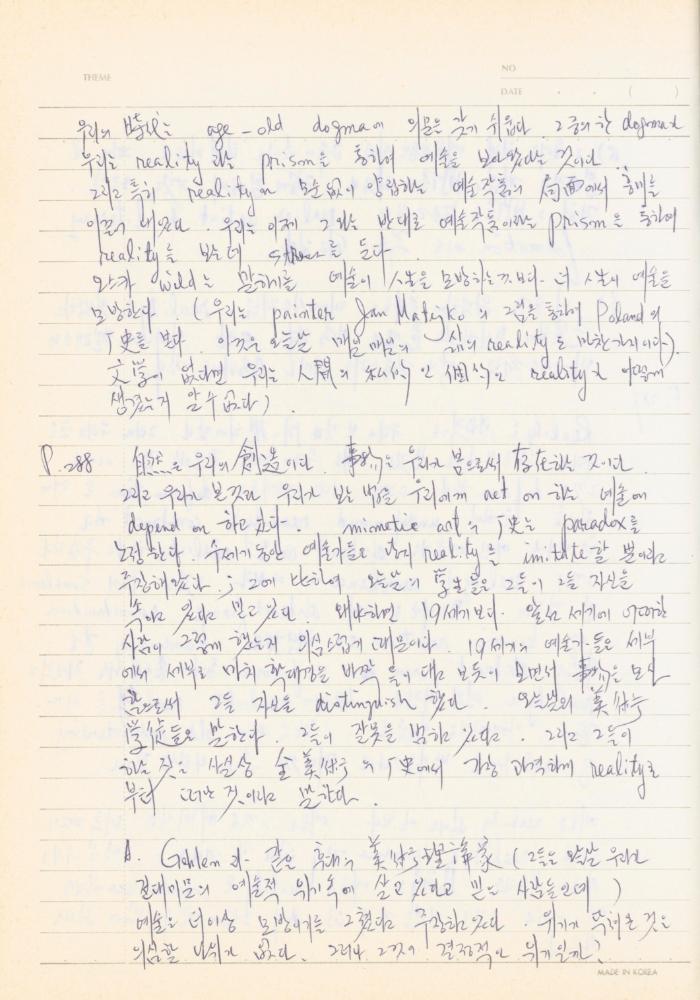 THEME
NO
DATE . . ( )
우리의 時代는 age-old dogma에 의문을 갖기 쉽다. 그중의 한 dogma는
우리는 reality라는 prism을 통하여 예술을 보아왔다는 것이다.
그리고 특히 reality와 모순없이 양립하는 예술작품의 局面에서 흥미를
이끌어 내었다. 우리는 이제 그와는 반대로 예술작품이라는 prism을 통하여
reality를 보는데 stress를 둔다.
오스카 wild는 말하기를 예술이 人生을 모방하는것보다 더 人生이 예술을
모방한다. (우리는 painter Jan Matejko의 그림을 통하여 Poland의
歷史를 본다. 이것은 오늘날 매일매일의 reality도 마찬가지이다)
文學이 없다면 우리는 人間의 私的인 個人的인 reality가 어떻게
생겼는지 알 수 없다)
P.288 自然은 우리의 創造이다. 事物은 우리가 봄으로써 存在하는 것이다.
그리고 우리가 본것과 우리가 보는 법을 우리에게 act on 하는 예술에
depend on 하고 있다. mimetic art의 歷史는 paradox를
노정한다. 수세기동안 예술가들은 단지 reality를 imitate할 뿐이라고
주장해왔다.; 그에 比하여 오늘날의 學生들은 그들이 그들 자신을
속이고 있다고 믿고 있다. 왜냐하면 19세기보다 앞선 세기에 어떠한
사람이 그렇게 했는지 의심스럽기 때문이다. 19세기의 예술가들은 세부
에서 세부로 마치 확대경을 바짝 들이대고 보듯이 보면서 事物을 모사
함으로써 그들 자신을 distinguish 했다. 오늘날의 美術
學徒들은 말한다. 그들이 잘못을 범하고 있다고. 그리고 그들이
하는 짓은 사실상 全美術의 歷史에서 가장 과격하게 reality로
부터 떠난 것이라고 말한다.
A. Gehlen과 같은 현대의 美術理論家 (그들은 오늘날 우리가
절대미문의 예술적 위기속에 살고 있다고 믿은 사람들인데)
예술은 더이상 모방이기를 그쳤다고 주장하고 있다. 위기가 닥쳐온 것은
의심할 나위가 없다. 그러나 그것이 결정적인 위기일까?
MADE IN KOREA